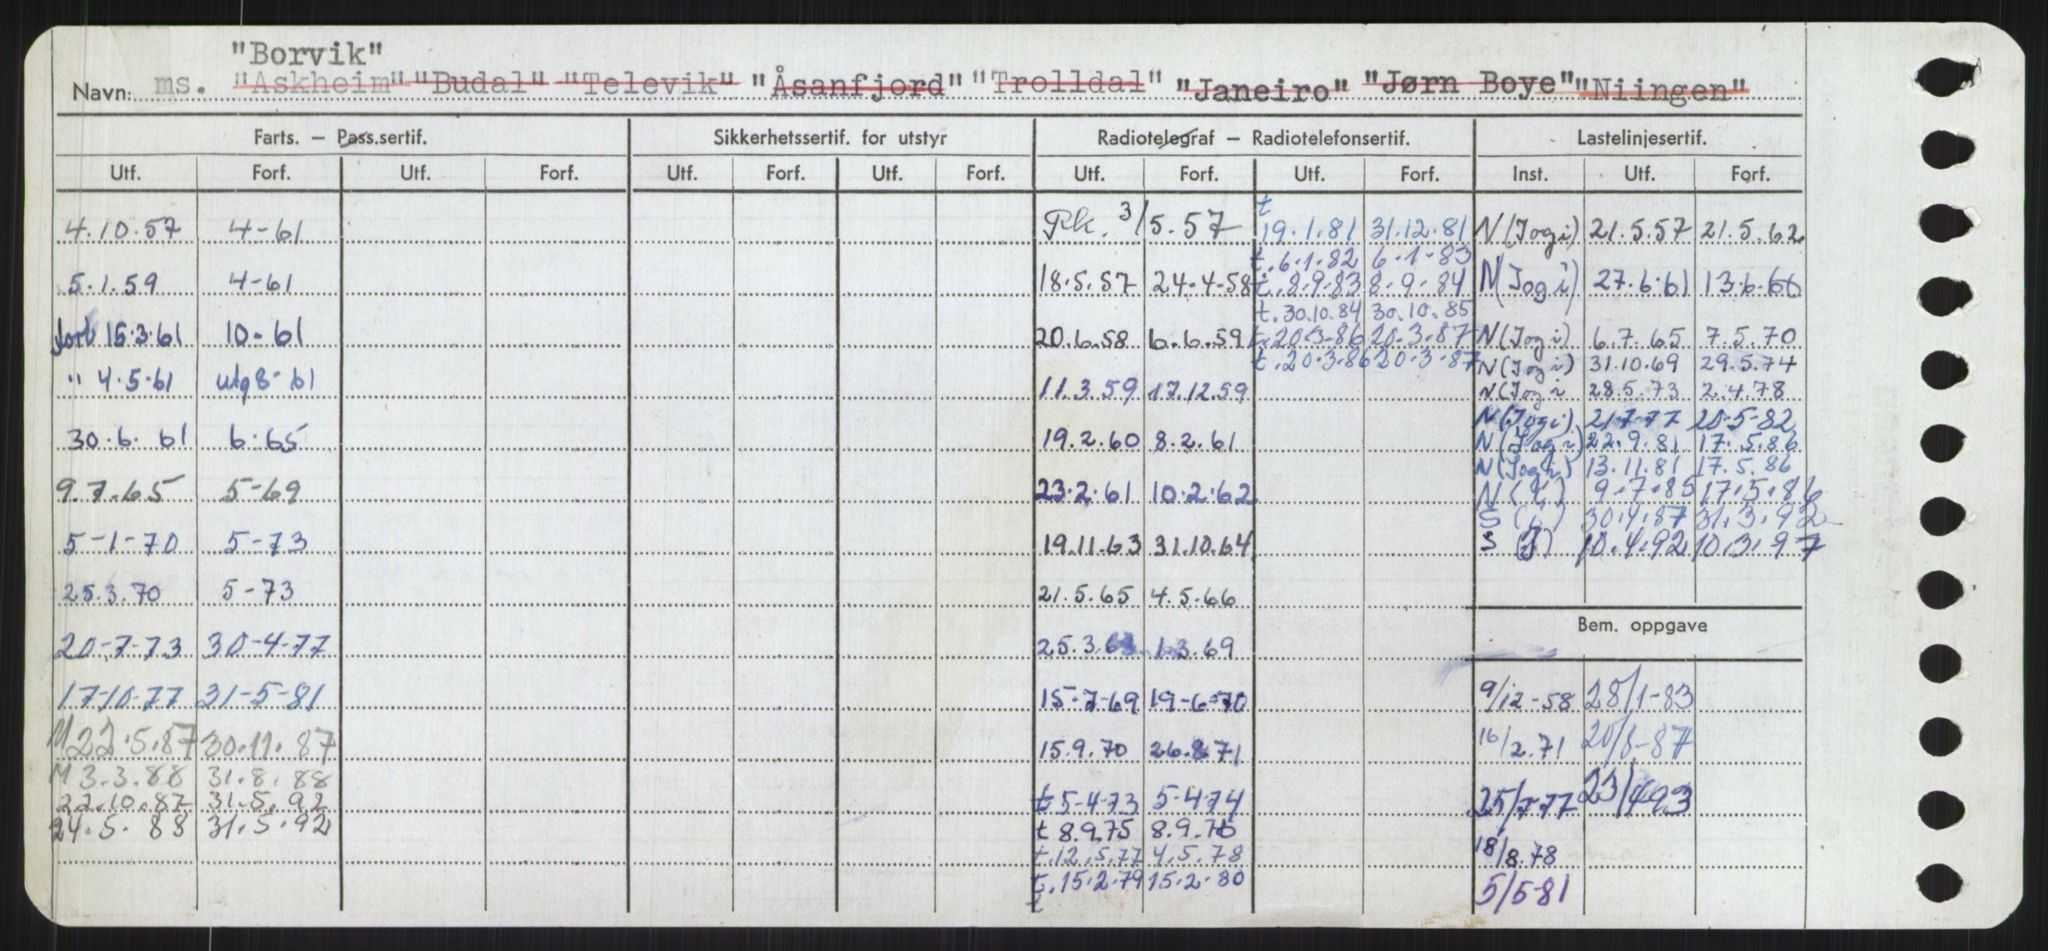 "Borvik"
Navn: ms. "Askheim" "Budal" "Televik" "Åsanfjord" "Trolldal" "Janeiro" "Jørn Boye" "Niingen"
Farts. – Pass.sertif. Sikkerhetssertif. for utstyr Radiotelegraf – Radiotelefonsertif. Lastelinjesertif.
Utf. Forf. Utf. Forf. Utf. Forf. Utf. Forf. Utf. Forf. Utf. Forf. Inst. Utf. Forf.
4.10.57 4-61
5.1.59 4-61
forl 15.3.61 10-61
" 4.5.61 utg 8-61
30.6.61 6.65
9.7.65 5-69
5-1-70 5-73
25.3.70 5-73
20-7-73 30-4-77
17-10-77 31-5-81
M 22.5.87 30.11.87
M 3.3.88 31.8.88
22.10.87 31.5.92
24.5.88 31.5.92
Pk. 3/5.57
18.5.57 24-4-58
20.6.58 6.6.59
11.3.59 17.12.59
19.2.60 8.2.61
23.2.61 10.2.62
19.11.63 31.10.64
21.5.65 4.5.66
25.3.68 1.3.69
15-7-69 19-6-70
15.9.70 26.8.71
t 5-4-73 5-4-74
t 8.9.75 8.9.76
t.12.5.77 4.5.78
t.15.2.79 15.2.80
t
t
19.1.81 31.12.81
t.6.1.82 6.1-83
t.8.9.83 8.9.84
t.30.10.84 30.10.85
t.20.3.86 20.3.87
t.20.3.86 20.3.87
N (Jogi) 21.5.57 21.5.62
N (Jogi) 27.6.61 13.6.66
N (Jogi) 6.7.65 7.5.70
N (Jogi) 31.10.69 29.5.74
N (Jogi 28.5.73 2.4.78
N (Jogi) 21-7-77 20-5-82
N (Jogi) 22.9.81 17.5.86
N (Jogi) 13.11.81 17.5.86
N 9.7.85 17.5.86
S 30.4.87 31.3.92
S (J) 10.4.92 10.3.97
Bem. oppgave
9/12-58 28/1-83
16/2.71 20/8-87
25/7-77 23/4-93
18/8.78
5/5-81